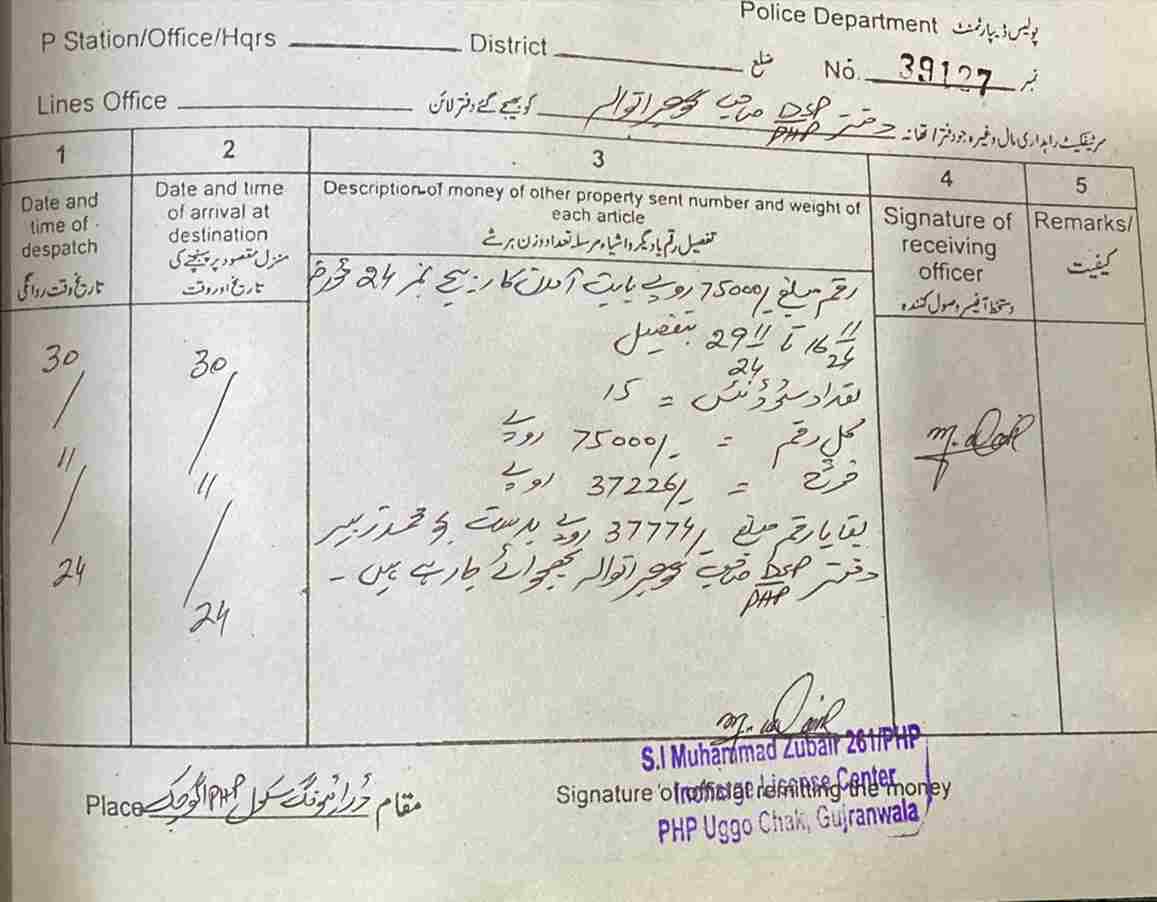 Police Department پولیس ڈیپارٹمنٹ
P Station/Office/Hqrs District ضلع No. 39127 نمبر
Lines Office کو بھیجے گئے دفتر لائن دفتر DSP PHP صاحب گوجرانوالہ سرٹیفکیٹ راہداری مال وغیرہ جو دفتر / تھانہ
1 2 3 4 5
Date and time of despatch
تاریخ وقت روانگی
Date and time of arrival at destination
منزل مقصود پر پہنچنے کی تاریخ اور وقت
Description of money of other property sent number and weight of each article
تفصیل رقم یا دیگر اشیاء مرسلہ تعداد وزن ہر شے
Signature of receiving officer
دستخط آفیسر وصول کنندہ
Remarks/
کیفیت
30/11/24
30/11/24
رقم مبلغ 75000/- روپے بابت آمدن کار بیچ نمبر 24 مورخہ
16 11/24 تا 29 11/24 بتفصیل
تعداد سٹوڈنٹس = 15
کل رقم = 75000/- روپے
خرچ = 37226/- روپے
بقایا رقم مبلغ 37774/- روپے بدست محمد زبیر
دفتر DSP PHP صاحب گوجرانوالہ بھجوائے جا رہے ہیں -
S.I Muhammad Zubair 261/PHP
Incharge License Center
PHP Uggo Chak, Gujranwala
Signature of official remitting the money
Place ڈرائیونگ سکول PHP اگوچک مقام